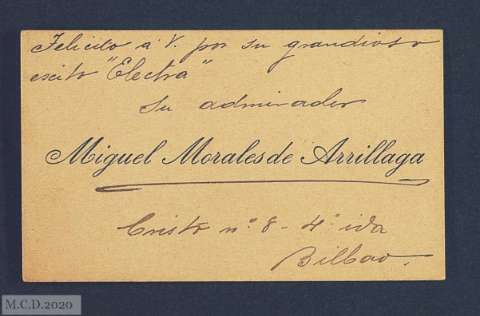 Felicito á V. por su grandioso
escito "Electra"
Su admirador
Miguel Morales de Arrillaga
Cristo nº 8 - 4º izda
Bilbao.
M.C.D.2020